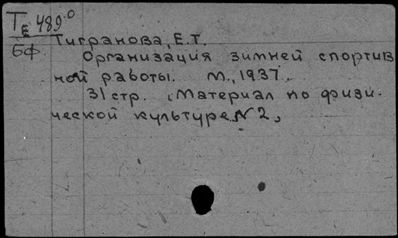 Те 489⁰
БФ.
Тигранова, Е.Т.
Организация зимней спортив
ной работы. М., 1937.
31 стр. (Материал по физи-
ческой культуре N2,